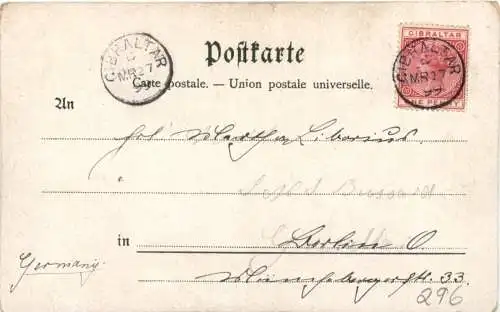 GIBRALTAR
C
MR 27
99
Postkarte
GIBRALTAR
GIBRALTAR
C
MR 27
99
ONE PENNY
Carte postale. — Union postale universelle.
An
Frl. Martha Liborius
in Berlin O.
Germany.
Münchebergerstr. 33.
296